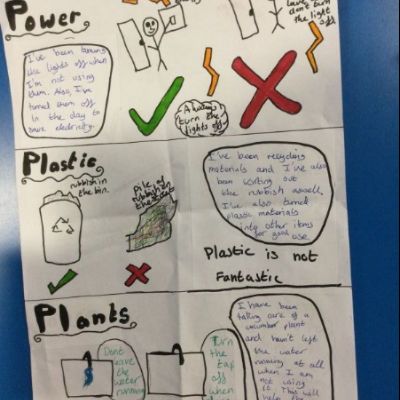 Power
I've been turning
the lights off when
I'm not using
them. Also, I've
turned them off
in the day to
save electricity.
leave
don't turn
the light
off.
Always
turn the
lights off
Plastic
rubbish in
the bin.
Pile of
rubbish in
the
I've been recycling
materials and I've also
been sorting out
the rubbish aswell,
I've also turned
plastic materials
into other items
for good use
Plastic is not
Fantastic
Plants
Dont
leave the
water
running
Turn
the tap
off
when
I have been
taking care of a
cucumber plant
and havn't left
the water
running at all
when I am
not using
it. This will
help